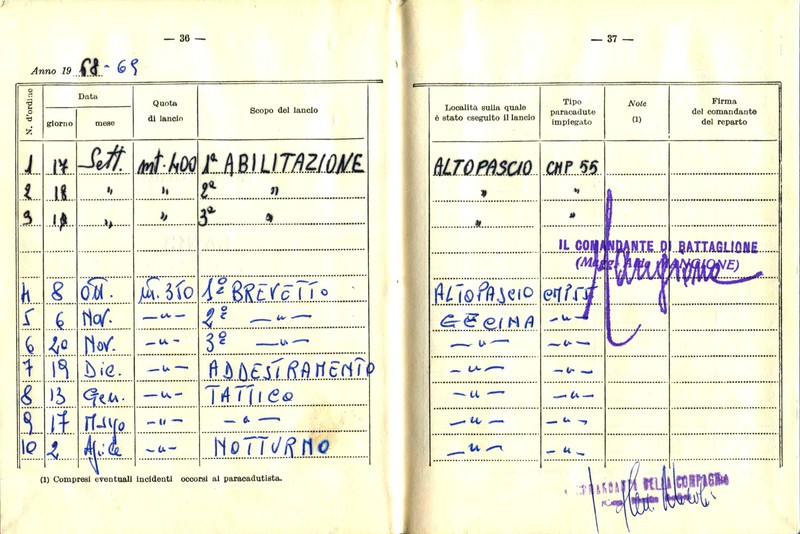 — 36 —
Anno 19 68-69
N. d'ordine
Data
giorno
mese
Quota di lancio
Scopo del lancio
1 17 Sett. mt. 400 1ª ABILITAZIONE
2 18 " " 2ª "
3 " " 3ª "
4 8 Ott. m. 350 1º BREVETTO
5 6 Nov. —"— 2º —"—
6 20 Nov. —"— 3º —"—
7 19 Dic. —"— ADDESTRAMENTO
8 13 Gen. —"— TATTICO
9 17 —"— —"—
10 2 —"— NOTTURNO
(1) Compresi eventuali incidenti occorsi al paracadutista.
— 37 —
Località sulla quale è stato eseguito il lancio
Tipo paracadute impiegato
Note (1)
Firma del comandante del reparto
ALTOPASCIO CMP 55
" "
" "
IL COMANDANTE DI BATTAGLIONE
MANGIONE)
ALTOPASCIO CMP55
CECINA —"—
—"— —"—
—"— —"—
—"— —"—
—"— —"—
—"— —"—
COMANDANTE DELLA COMPAGNIA